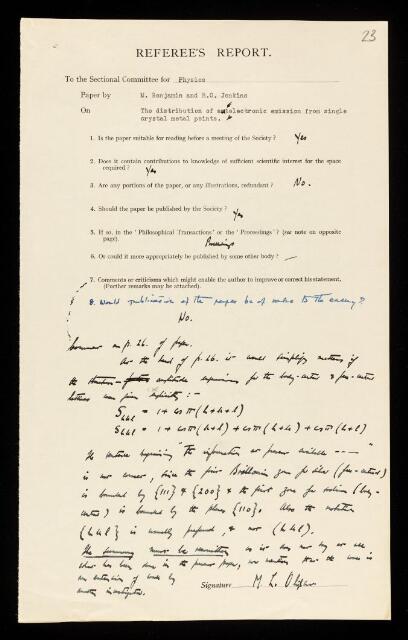 23
REFEREE'S REPORT.
To the Sectional Committee for Physics
Paper by M. Benjamin and R.O. Jenkins
On The distribution of autelectronic emission from single
crystal metal points.
1. Is the paper suitable for reading before a meeting of the Society? Yes
2. Does it contain contributions to knowledge of sufficient scientific interest for the space
required? Yes
3. Are any portions of the paper, or any illustrations, redundant? No.
4. Should the paper be published by the Society? Yes
5. If so, in the 'Philosophical Transactions' or the 'Proceedings'? (see note on opposite
page). Proceedings
6. Or could it more appropriately be published by some other body? —
7. Comments or criticisms which might enable the author to improve or correct his statement.
(Further remarks may be attached).
8. Would publication of the paper be of value to the enemy?
No.
Comment on p. 26. of paper.
At the head of p. 26. it would simplify matters if
the structure amplitude expressions for the body-centred & face-centred
lattices were given explicitly :-
S hkl = 1 + cos π (h+k+l)
S hkl = 1 + cos π (h+k) + cos π (h+l) + cos π (k+l)
The sentence beginning "The information at present available - - - -"
is not correct, since the first Brillouin zone for silver (face-centred)
is bounded by {111} & {200} & the first zone for sodium (body-
centred) is bounded by the planes {110}. Also the notation
{hkl} is usually preferred, & not (hkl).
The summary must be rewritten as it does not say
what has been done in the present paper,
an extension of work by
another investigator.
Signature M. L. Oliphant